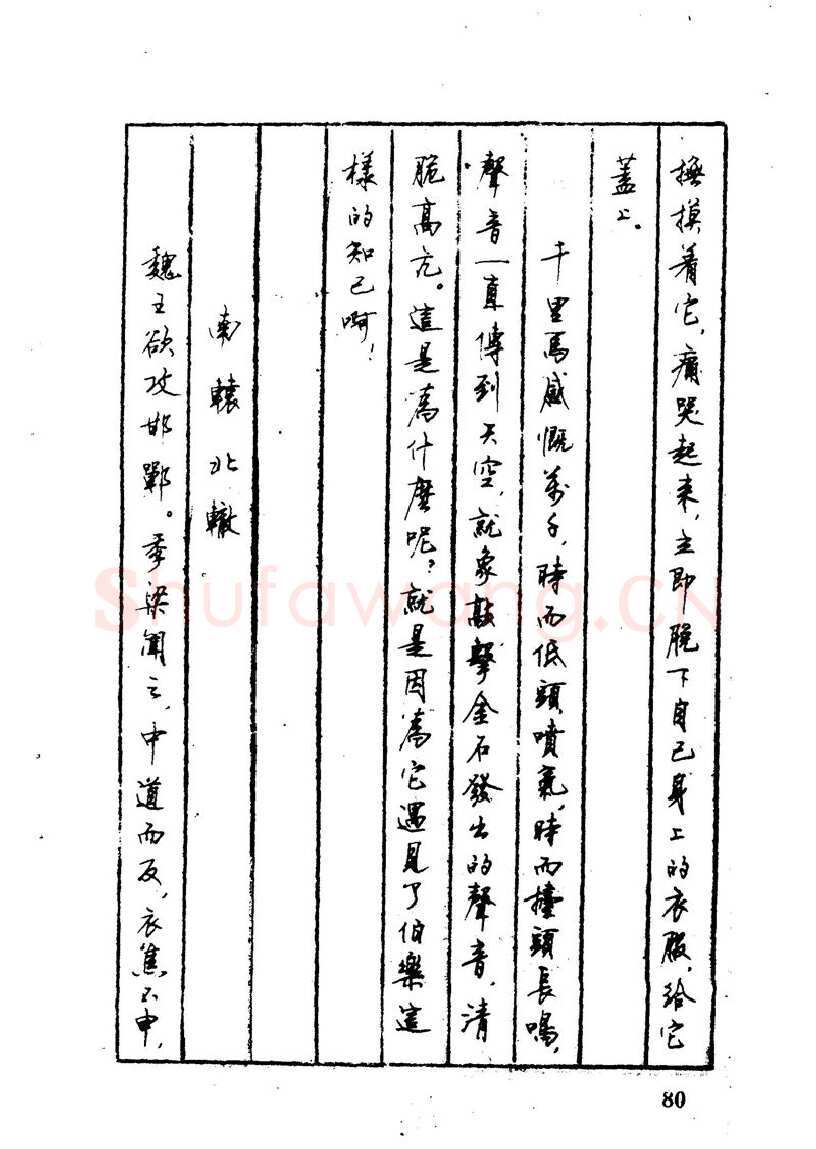 撫摸着它，痛哭起来，立即脱下自己身上的衣服，给它
蓋上。
千里馬感慨萬千，時而低頭噴氣，時而擡頭長鳴，
聲音一直傳到天空，就象敲擊金石發出的聲音，清
脆高亢。這是為什麽呢？就是因為它遇見了伯樂這
樣的知己啊！
南轅北轍
魏王欲攻邯鄲。季梁聞之，中道而反，衣焦不申，
80
Shufawang.CN